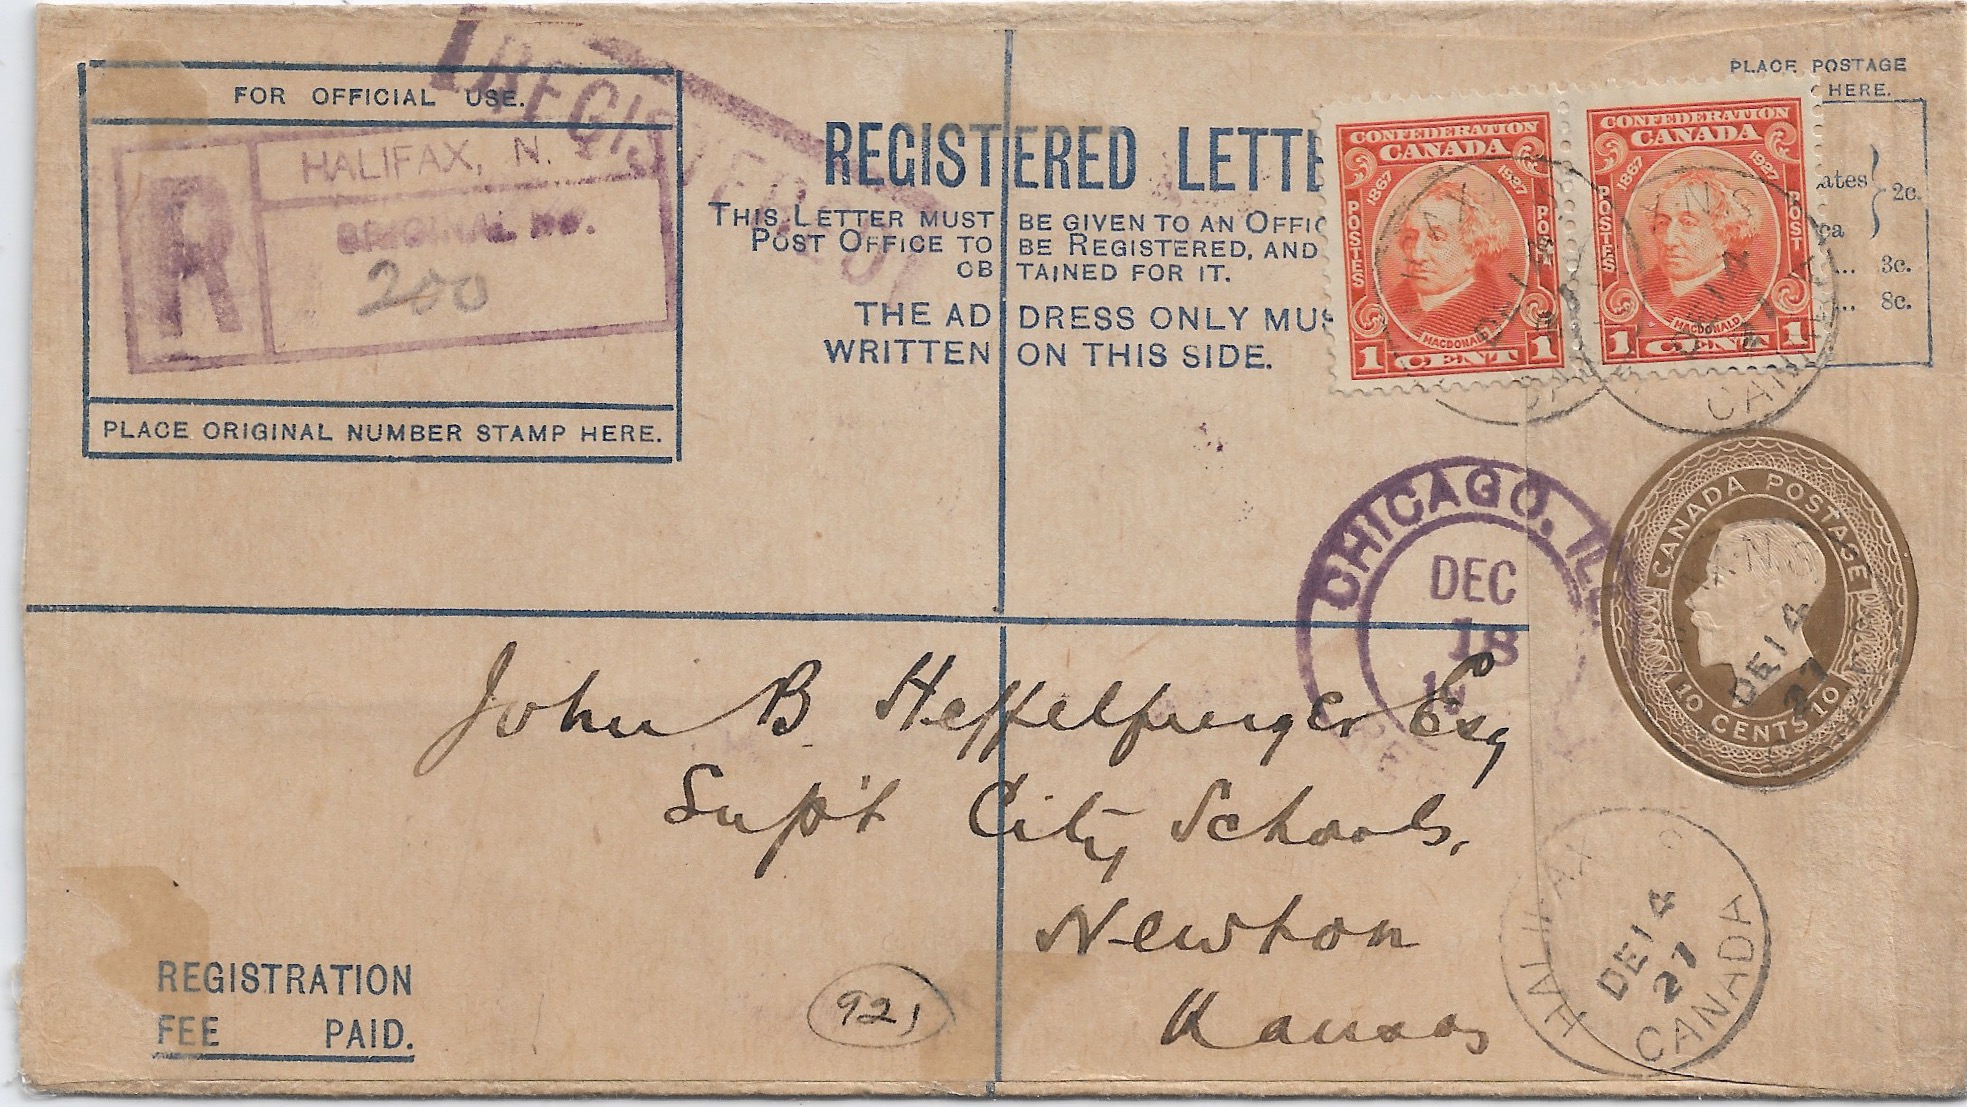 FOR OFFICIAL USE.
REGISTERED
HALIFAX, N.
R
ORIGINAL No.
200
PLACE ORIGINAL NUMBER STAMP HERE.
REGISTERED LETTE
THIS LETTER MUST BE GIVEN TO AN OFFIC
POST OFFICE TO BE REGISTERED, AND
OB TAINED FOR IT.
THE AD DRESS ONLY MUS
WRITTEN ON THIS SIDE.
PLACE POSTAGE
HERE.
ates } 2c.
ca
... 3c.
... 8c.
CONFEDERATION
CANADA
1867 1927
POSTES POST
MACDONALD
1 CENT 1
CONFEDERATION
CANADA
1867 1927
POSTES POST
MACDONALD
1 CENT 1
DE 14
DE 14
CANADA
CHICAGO, ILL
DEC
18
REG
CANADA POSTAGE
10 CENTS 10
DE 14
27
John B Heffelfinger Esq
Sup't City Schools,
Newton
Kansas
921
HALIFAX
DE 14
27
CANADA
REGISTRATION
FEE PAID.